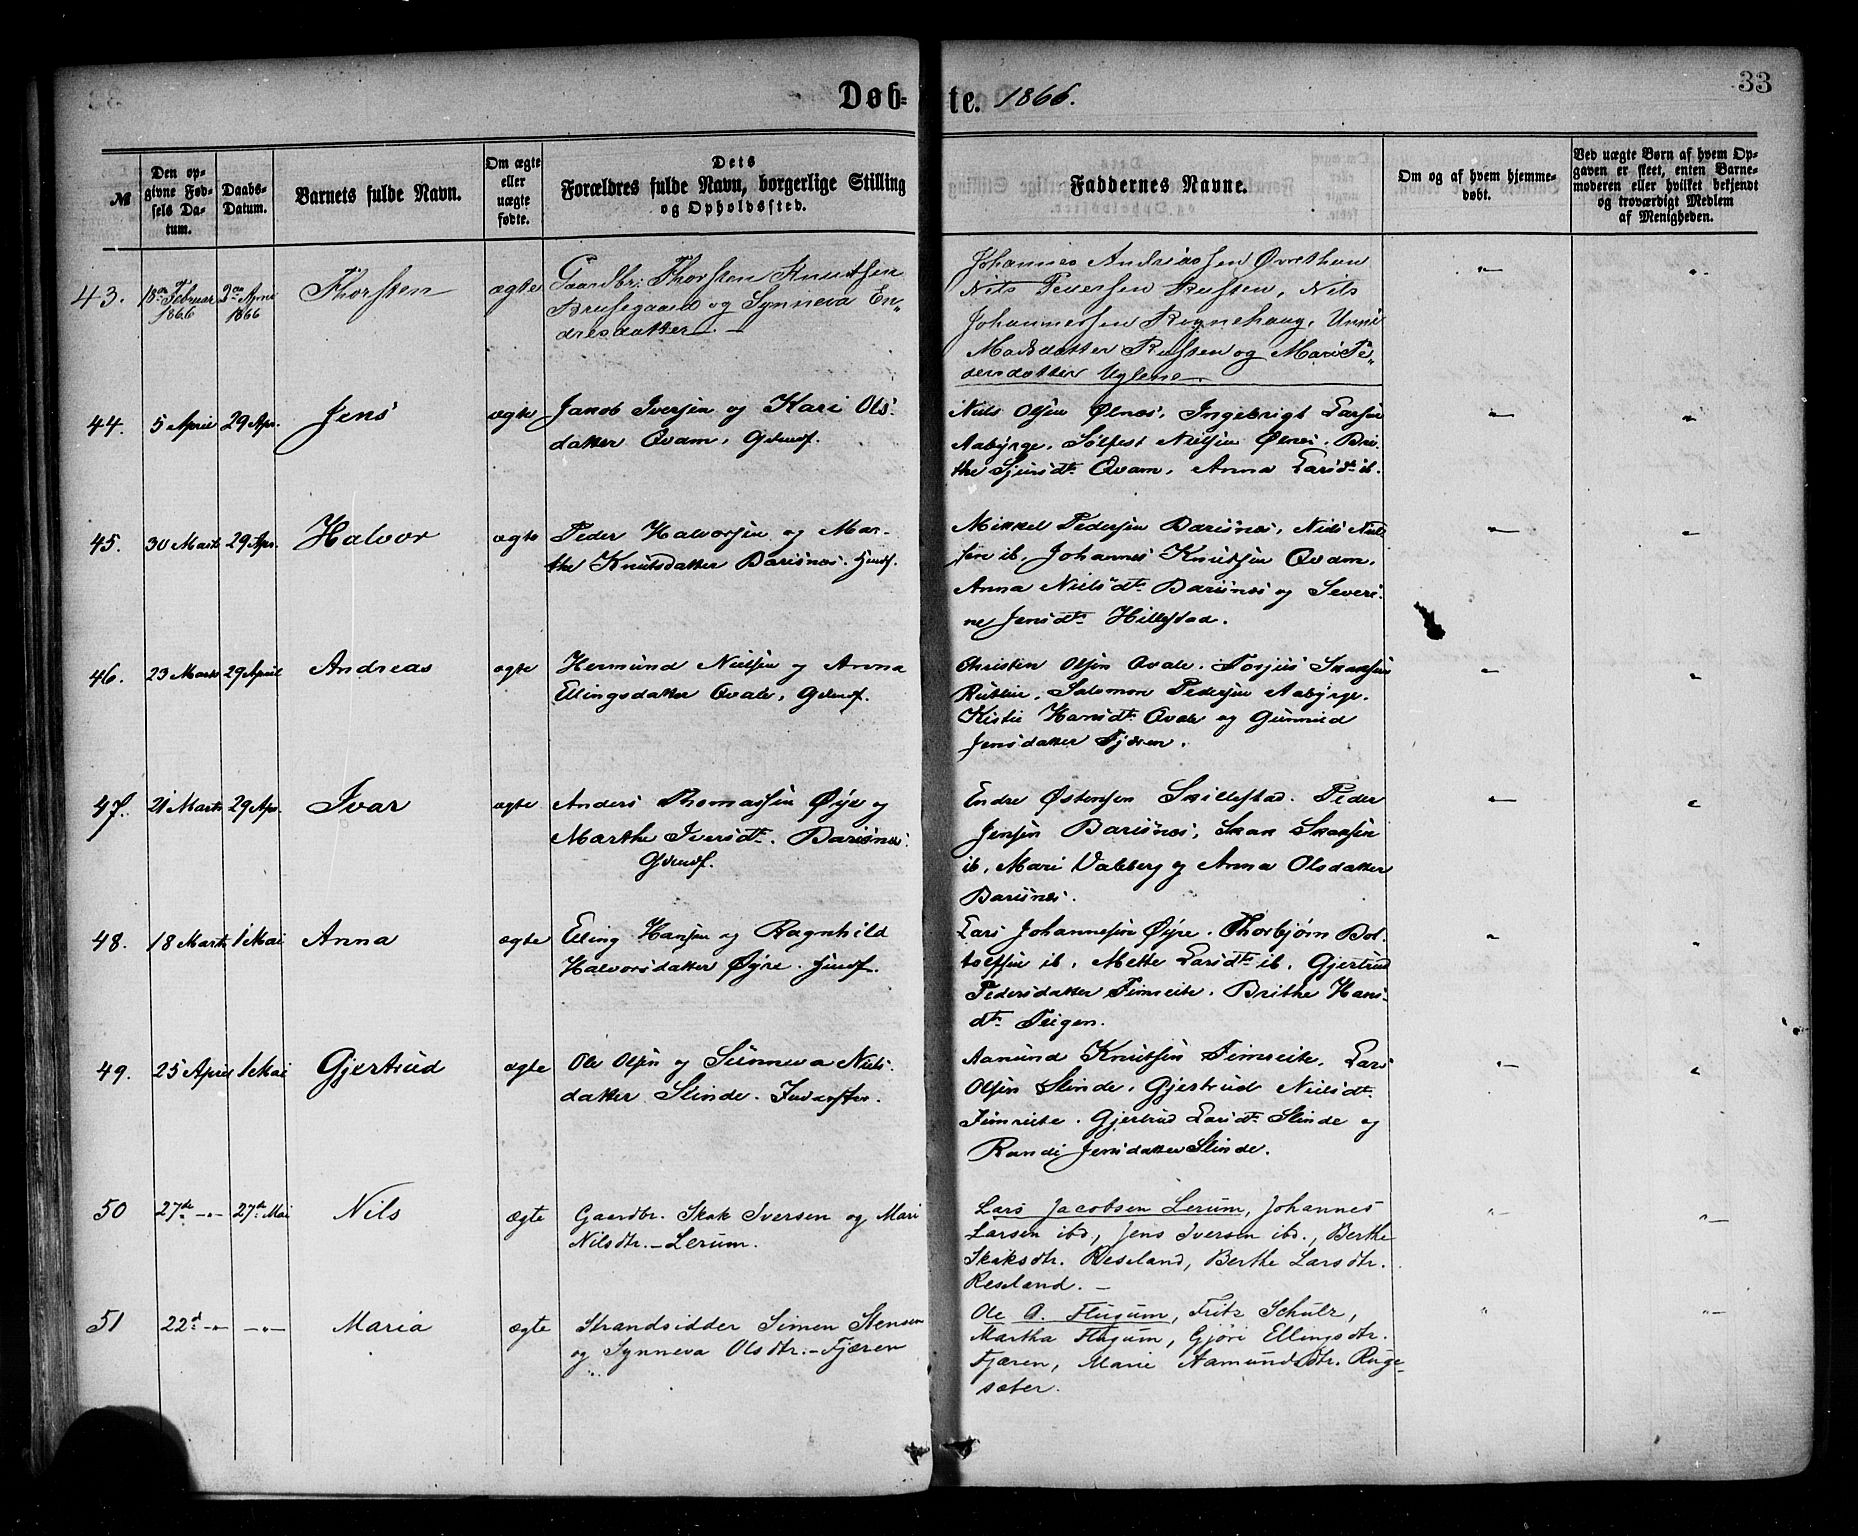 Døb=te. 1866.
33
№
Den opgivne Fødsels Datum.
Daabs-Datum.
Barnets fulde Navn.
Om ægte eller uægte fødte.
Dets Forældres fulde Navn, borgerlige Stilling og Opholdssted.
Faddernes Navne.
Om og af hvem hjemmedøbt.
Ved uægte Børn af hvem Opgaven er skeet, enten Barnemoderen eller hvilket bekjendt og troværdigt Medlem af Menigheden.
43. Februar 1866 2den April 1866 Thorsten ægte Gaardbr. Thorsten Knutsen
Brusegaard og Synneva En„
dresdatter. —
Johannes Andreassen Øvrethun
Nils Peversen Russen, Nils
Johannessen Rognehaug, Unni
Madsdatter Russen og Mari Pe„
dersdatter Uglene —.
44. 5 April 29 Apr. Jens ægte Jacob Iversen og Kari Ols-
datter Qvam, Gdmdf.
Niels Olsen Ølnes, Ingebrigt Larsen
Aabyrge. Sølfest Nielsen Ølnes. Bri
the Sjursdtr Qvam, Anna Larsdtr ib.
45. 30 Marts 29 Apr. Halvor ægte Peder Halvorsen og Mar-
the Knutsdatter Barsnes.
Mikkel Pedersen Barsnes, Niels Niel
sen ib, Johannes Knutsen Qvam,
Anna Nielsdtr Barsnes og Severi-
ne Jensdtr Hillestad.
46. 23 Marts 29 April Andreas ægte Hermund Nielsen og Anna
Ellingsdatter Qvale, Gdmdf.
Christen Olsen Qvale. Torjus Skaksen
Salomon Pedersen Aabyrge.
Kistie Hansdtr Qvale og Gunnild
Jensdatter Fjæren.
47. 21 Marts 29 Apr. Ivar ægte Anders Thomassen Øye og
Marthe Iversdtr. Barsnes.
Gdmdf.
Endre Østensen Skillestad. Peder
Jensen Barsnes, Skak Skaksen
ib, Mari Valeberg og Anna Olsdatter
Barsnes.
48. 18 Marts 1 Mai Anna ægte Elling Hansen og Ragnhild
Halvorsdatter Øyre.
Lars Johannesen Øyre. Thorbjørn Bot
tolfsen ib, Mette Larsdtr ib, Gjertrud
Pedersdatter Fimreite. Brithe Hans-
dtr Teigen.
49. 25 April 1 Mai Gjertrud ægte Ole Olsen og Sünneva Niels-
datter Slinde. Inderster.
Aamund Knutsen Fimreite, Lars
Olsen Slinde, Gjertrud Nielsdtr
Fimreite. Gjertrud Larsdtr Slinde og
Randi Jensdatter Slinde.
50 27de —„— 27de Mai Nils ægte Gaardbr. Skak Iversen og Mari
Nilsdtr. — Lerum.
Lars Jacobsen Lerum, Johannes
Larsen ibd, Jens Iversen ibd., Berthe
Skaksdtr. Reseland, Berthe Larsdtr.
Reseland. —
51 22d —„— —„— Maria ægte Strandsidder Simen Stensen
og Synneva Olsdtr. — Fjæren
Ole A. Flugum, Fritz Schulz,
Martha Flugum, Gjøri Ellingsdtr.
Fjæren, Marie Aamundsdtr. Ryge-
sæter.